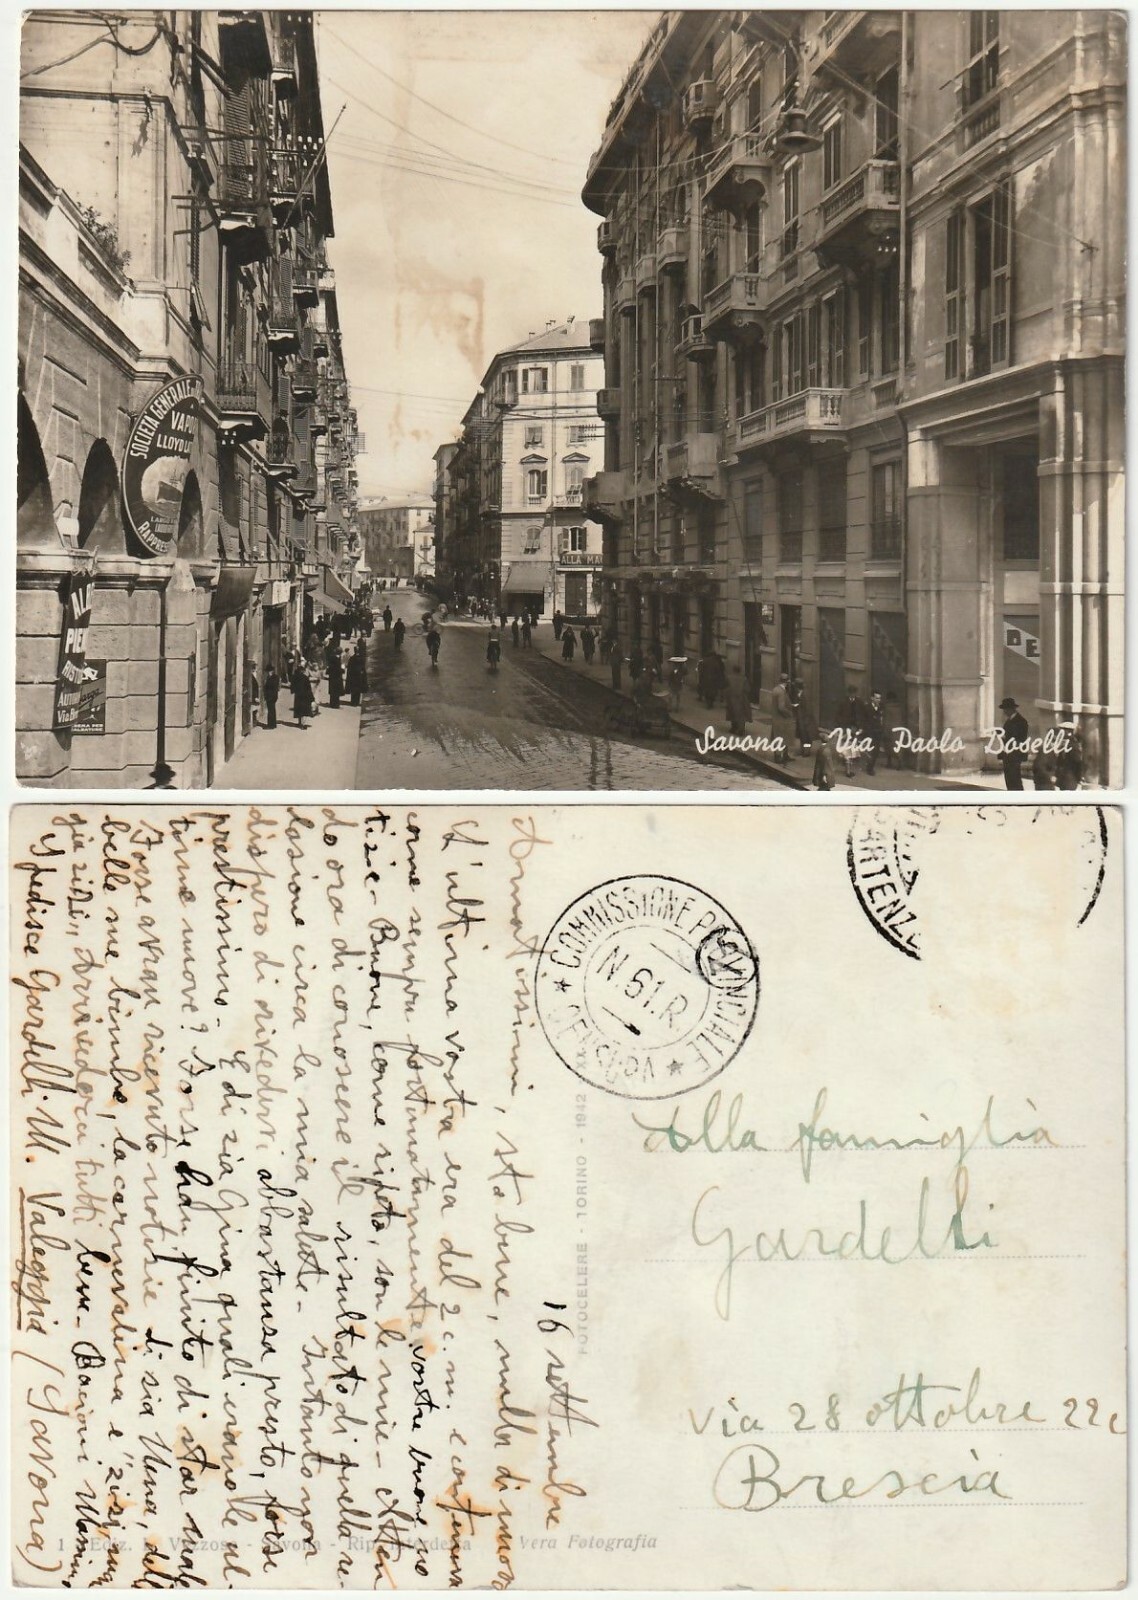 SOCIETÀ GENERALE
VAPO
LLOYD LA
RAPPRES
AL
PIE
RIST
Via
ALLA MA
DE
Savona - Via Paolo Boselli
16 settembre
Amatissimi, sto bene, nulla di nuovo
L'ultima vostra era del 2 c.m. e conteneva
come sempre fortunatamente vostre buone no
tizie - Buone, come ripeto, son le mie - Atten
do ora di conoscere il risultato di quella re
lazione circa la mia salute - Intanto non
dispero di rivedervi abbastanza presto, forse
prestissimo - E di zia Gina quali erano le ul-
time nuove? Forse han finito di star male
Forse avran ricevuto notizie di zia Nena, delle
belle sue bimbe, la carnevalina e "zizi,
già zizi,, Arrivederci tutti bene - Bacioni
Spedisce Gardelli M. Valeggia (Savona)
COMMISSIONE PROVINCIALE
CENSURA
N. 61. R.
ARTENZ
FOTOCELERE - TORINO - 1942 - XX
Alla famiglia
Gardelli
via 28 ottobre 22c
Brescia
1 Ediz. Vazzoso - Savona - Rip. interdetta Vera Fotografia